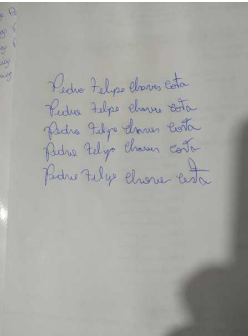 Pedro Felipe Chaves Costa
Pedro Felipe Chaves Costa
Pedro Felipe Chaves Costa
Pedro Felipe Chaves Costa
Pedro Felipe Chaves Costa